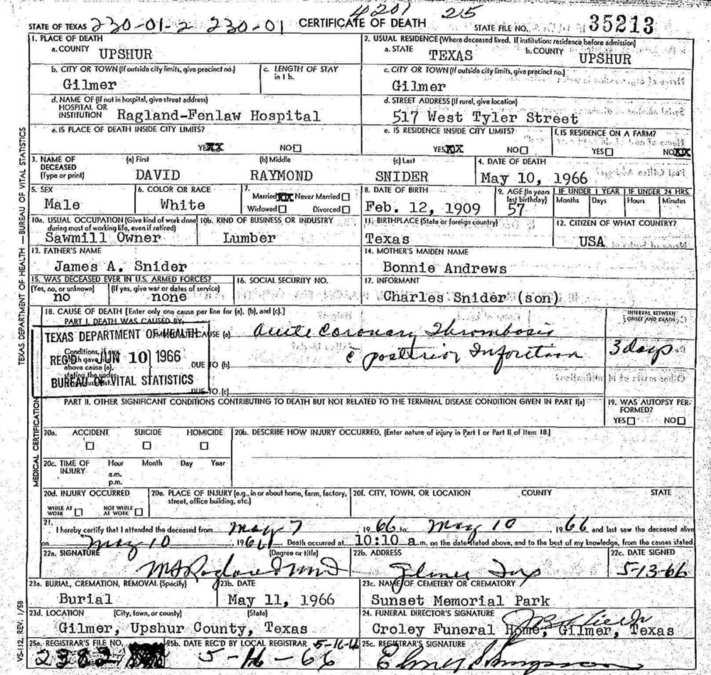 STATE OF TEXAS 230-01-2 230-01 CERTIFICATE OF DEATH 215 STATE FILE NO. 35213
1. PLACE OF DEATH
a. COUNTY UPSHUR
2. USUAL RESIDENCE (Where deceased lived. If institution: residence before admission)
a. STATE TEXAS b. COUNTY UPSHUR
b. CITY OR TOWN (If outside city limits, give precinct no.) Gilmer
c. LENGTH OF STAY in 1 b.
c. CITY OR TOWN (If outside city limits, give precinct no.) Gilmer
d. NAME OF (If not in hospital, give street address) HOSPITAL OR INSTITUTION Ragland-Fenlaw Hospital
d. STREET ADDRESS (If rural, give location) 517 West Tyler Street
e. IS PLACE OF DEATH INSIDE CITY LIMITS? YES XX NO
e. IS RESIDENCE INSIDE CITY LIMITS? YES XX NO
f. IS RESIDENCE ON A FARM? YES NO XX
3. NAME OF DECEASED (Type or print) (a) First DAVID (b) Middle RAYMOND (c) Last SNIDER
4. DATE OF DEATH May 10, 1966
5. SEX Male
6. COLOR OR RACE White
7. Married XX Never Married Widowed Divorced
8. DATE OF BIRTH Feb. 12, 1909
9. AGE (In years last birthday) 57
IF UNDER 1 YEAR Months Days
IF UNDER 24 HRS. Hours Minutes
10a. USUAL OCCUPATION (Give kind of work done during most of working life, even if retired) Sawmill Owner
10b. KIND OF BUSINESS OR INDUSTRY Lumber
11. BIRTHPLACE (State or foreign country) Texas
12. CITIZEN OF WHAT COUNTRY? USA
13. FATHER'S NAME James A. Snider
14. MOTHER'S MAIDEN NAME Bonnie Andrews
15. WAS DECEASED EVER IN U.S. ARMED FORCES? (Yes, no, or unknown) no (If yes, give war or dates of service) none
16. SOCIAL SECURITY NO.
17. INFORMANT Charles Snider (son)
18. CAUSE OF DEATH [Enter only one cause per line for (a), (b), and (c).]
INTERVAL BETWEEN ONSET AND DEATH
PART I. DEATH WAS CAUSED BY:
CAUSE (a) Acute Coronary Thrombosis
c̄ posterior Infarction 3 days
Conditions, if
above cause (a),
DUE TO (b)
DUE TO (c)
TEXAS DEPARTMENT OF HEALTH
REC'D JUN 10 1966
BUREAU OF VITAL STATISTICS
PART II. OTHER SIGNIFICANT CONDITIONS CONTRIBUTING TO DEATH BUT NOT RELATED TO THE TERMINAL DISEASE CONDITION GIVEN IN PART I(a)
19. WAS AUTOPSY PERFORMED? YES NO
20a. ACCIDENT SUICIDE HOMICIDE
20b. DESCRIBE HOW INJURY OCCURRED. (Enter nature of injury in Part I or Part II of Item 18.)
20c. TIME OF INJURY Hour a.m. p.m. Month Day Year
20d. INJURY OCCURRED WHILE AT WORK NOT WHILE AT WORK
20e. PLACE OF INJURY (e.g., in or about home, farm, factory, street, office building, etc.)
20f. CITY, TOWN, OR LOCATION COUNTY STATE
21. I hereby certify that I attended the deceased from May 7 1966 to May 10 1966 and last saw the deceased alive
on May 10 1966 Death occurred at 10:10 a.m. on the date stated above, and to the best of my knowledge, from the causes stated.
22a. SIGNATURE (Degree or title) MD
22b. ADDRESS Gilmer Tex
22c. DATE SIGNED 5-13-66
23a. BURIAL, CREMATION, REMOVAL (Specify) Burial
23b. DATE May 11, 1966
23c. NAME OF CEMETERY OR CREMATORY Sunset Memorial Park
23d. LOCATION (City, town, or county) (State) Gilmer, Upshur County, Texas
24. FUNERAL DIRECTOR'S SIGNATURE Croley Funeral Home, Gilmer, Texas
25a. REGISTRAR'S FILE NO. 2382
25b. DATE REC'D BY LOCAL REGISTRAR 5-16-66 5-16-66
25c. REGISTRAR'S SIGNATURE
TEXAS DEPARTMENT OF HEALTH — BUREAU OF VITAL STATISTICS
MEDICAL CERTIFICATION
VS-112, REV. 1/58